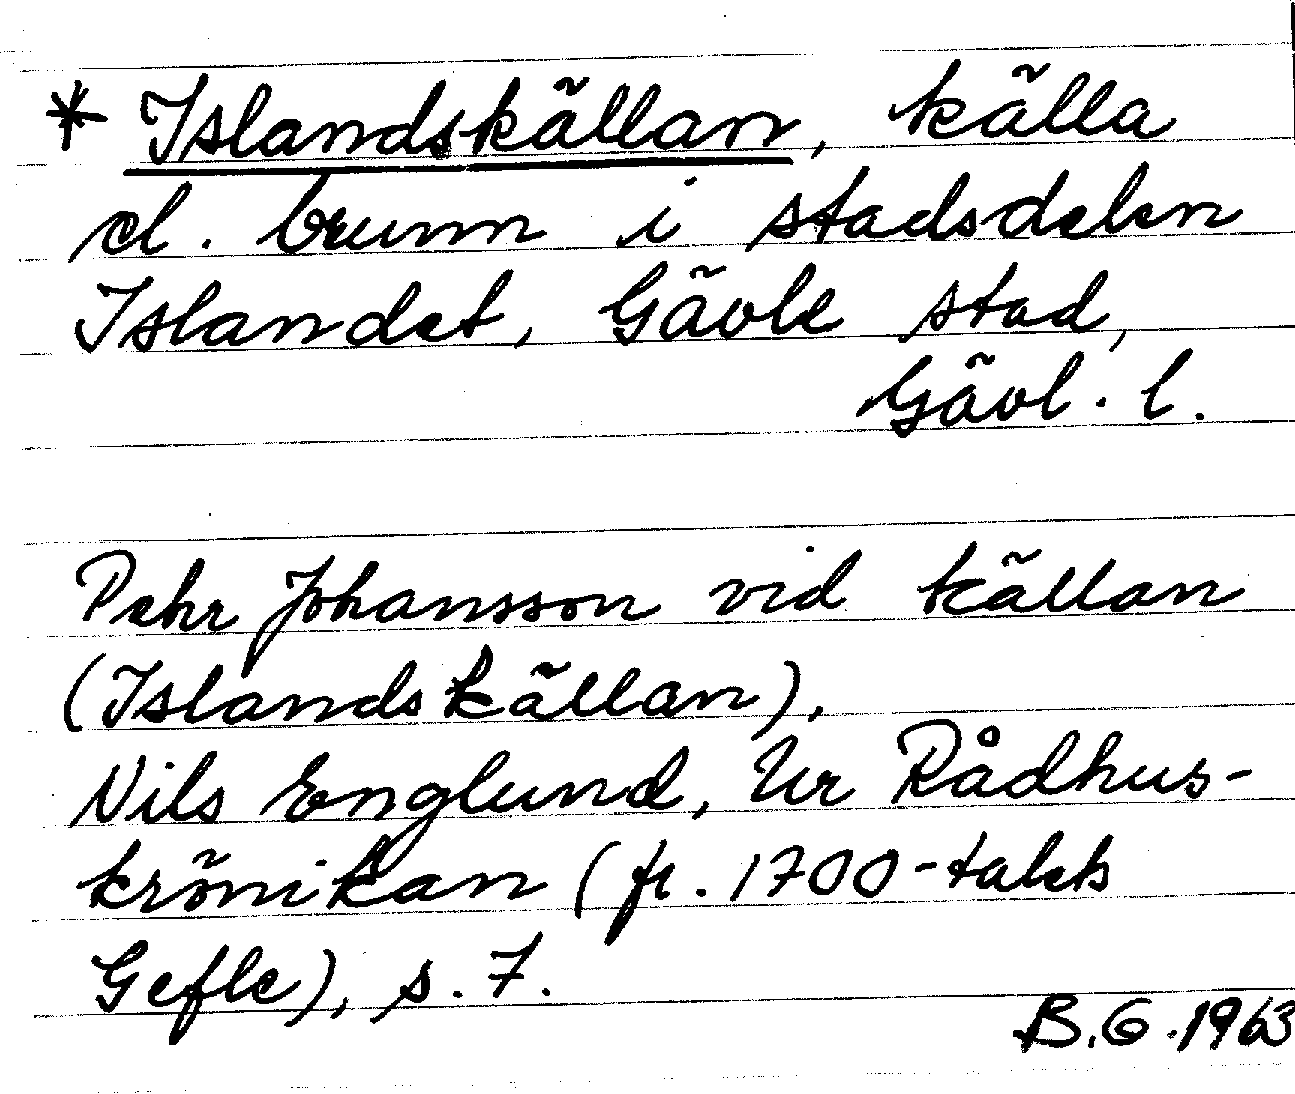 * Islandskällan, källa
el. brunn i stadsdelen
Islandet, Gävle stad,
Gävl. l.
Pehr Johansson vid källan
(Islandskällan),
Nils Englund, Ur Rådhus-
krönikan (fr. 1700-talets
Gefle), s. 7.
B.G. 1963